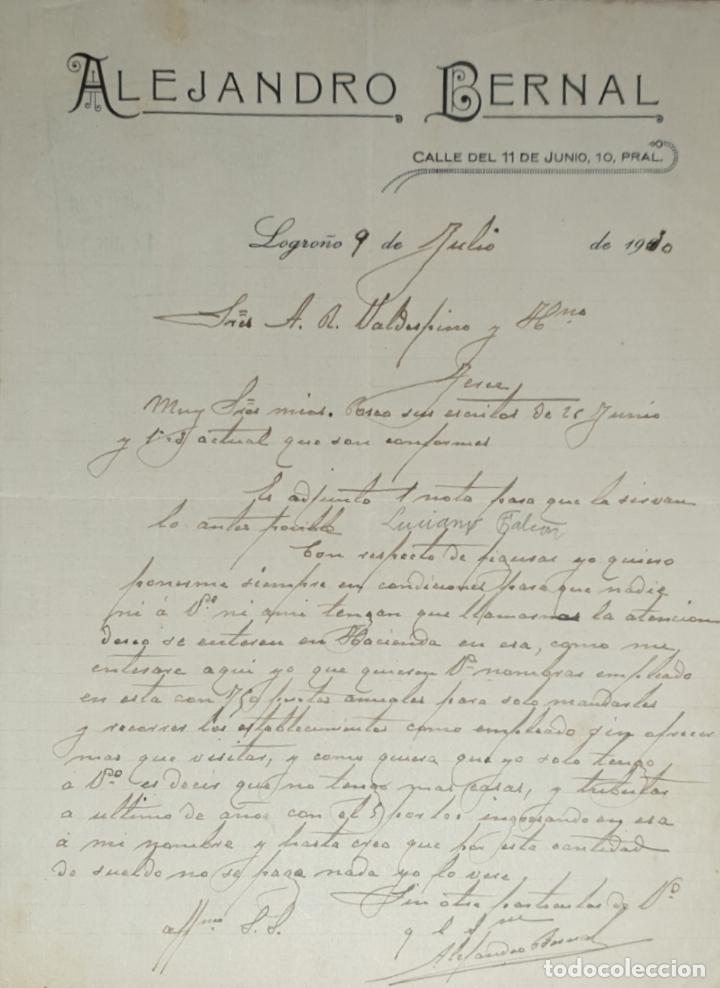 ALEJANDRO BERNAL
CALLE DEL 11 DE JUNIO, 10, PRAL.
Logroño 9 de Julio de 1910
Sres A. R. Valdespino y Hno
Jerez
Muy Sres mios. Poseo sus escritos de 25 Junio
y 1º actual que son conformes
Les adjunto 1 nota para que la sirvan
lo antes posible Luciano Falcon
Con respecto de figurar yo quiero
ponerme siempre en condiciones para que nadie
ni á Vds ni a mi tengan que llamarnos la atencion
deseo se enteren en Hacienda en esa, como me
enterare aqui yo que quieren Vds nombrar empleado
en esta con 750 pesetas anuales para solo mandarles
y recorrer los establecimientos como empleado sin ofrecer
mas que visitar, y como quiera que yo solo tengo
á Vds es decir que no tengo mas casas, y tributar
a ultimo de años con el 5 por 100 ingresando en esa
á mi nombre y hasta creo que por esta cantidad
de sueldo no se paga nada yo lo vere
Sin otro particular de Vds
affmo S. S. q e s m
Alejandro Bernal
todocoleccion
todocoleccion.net